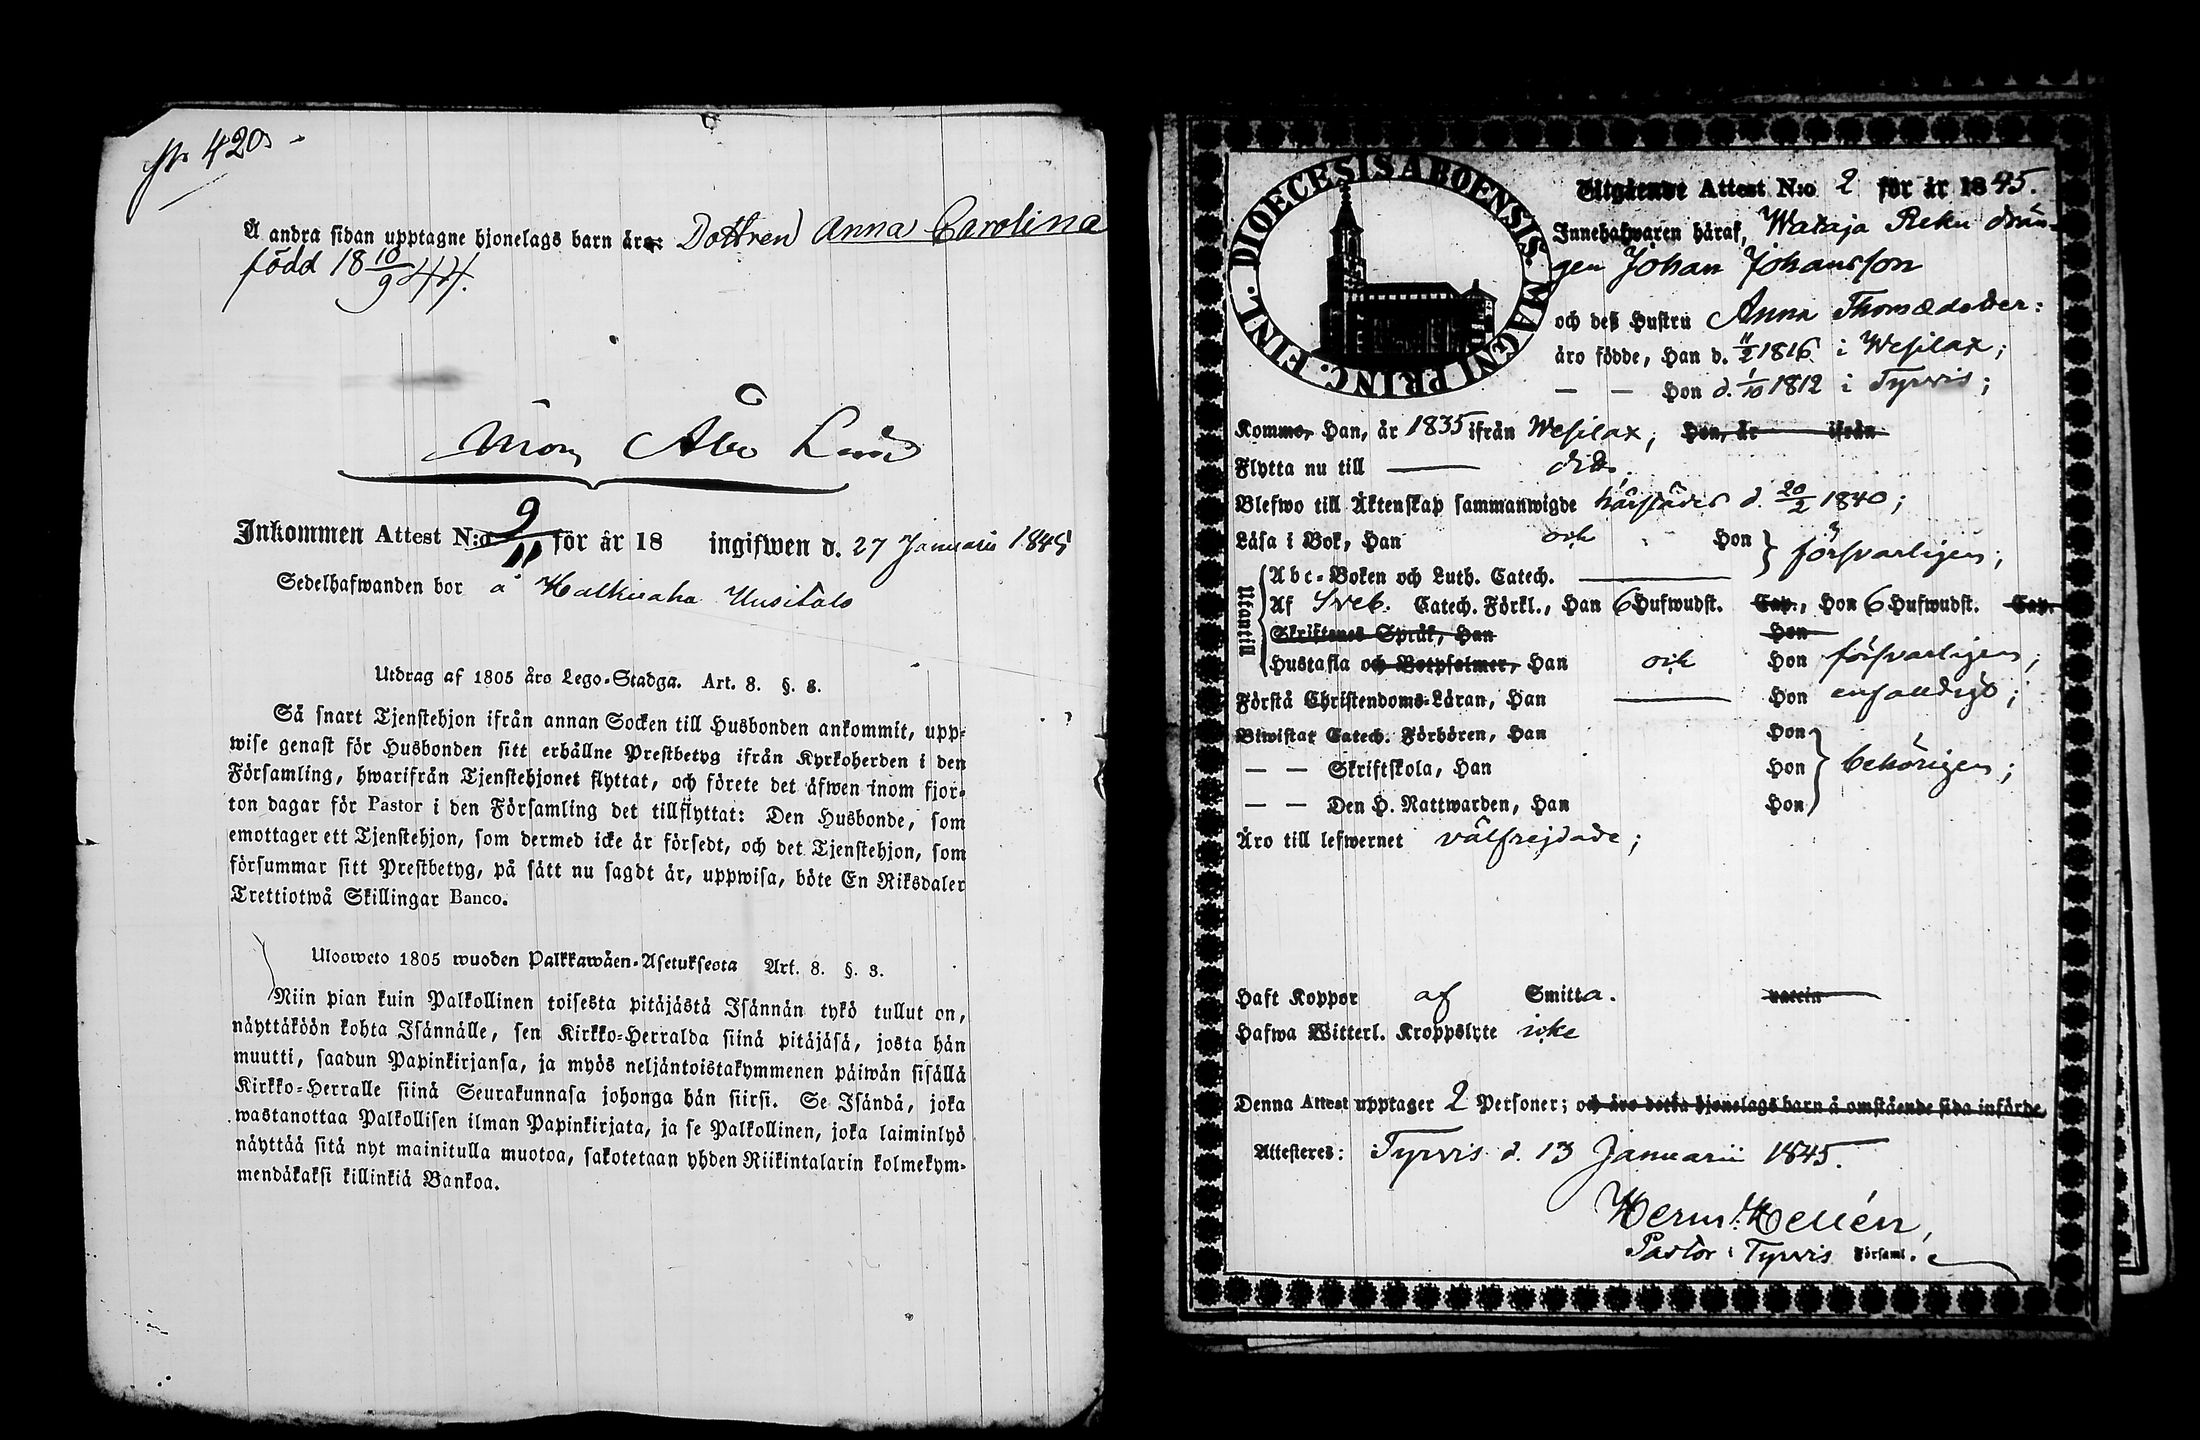 420
Å andra sidan upptagne hjonelags barn äro: Dottren Anna Carolina
född 18 10/9 44.
Åbo Län
Inkommen Attest N:o 9/11 för år 18 ingifwen d. 27 Januarii 1845
Sedelhafwanden bor å Halkivaha Uusitalo
Utdrag af 1805 års Lego-Stadga. Art. 8. §. 3.
Så snart Tjenstehjon ifrån annan Socken till Husbonden ankommit, upp-
wise genast för Husbonden sitt erhållne Prestbetyg ifrån Kyrkoherden i den
Församling, hwarifrån Tjenstehjonet flyttat, och förete det äfwen inom fjor-
ton dagar för Pastor i den Församling det tillflyttat: Den Husbonde, som
emottager ett Tjenstehjon, som dermed icke är försedt, och det Tjenstehjon, som
försummar sitt Prestbetyg, på sätt nu sagdt är, uppwisa, böte En Riksdaler
Trettiotwå Skillingar Banco.
Ulosweto 1805 wuoden Palkkawäen-Asetuksesta Art. 8. §. 3.
Niin pian kuin Palkollinen toisesta pitäjästä Isännän tykö tullut on,
näyttäköön kohta Isännälle, sen Kirkko-Herralda siinä pitäjäsä, josta hän
muutti, saadun Papinkirjansa, ja myös neljäntoistakymmenen päiwän sisällä
Kirkko-Herralle siinä Seurakunnasa johonga hän siirsi. Se Isändä, joka
wastanottaa Palkollisen ilman Papinkirjata, ja se Palkollinen, joka laiminlyö
näyttää sitä nyt mainitulla muotoa, sakotetaan yhden Riikintalarin kolmekym-
mendäkaksi killinkiä Bankoa.
DIOECESIS ABOENSIS. MAGNI PRINC. FINL.
Utgående Attest N:o 2 för år 1845.
Innehafwaren häraf, Wataja Reku drän-
gen Johan Johansson
och deß Hustru Anna Thomædotter:
äro födde, Han d. 11/2 1816 i Wesilax;
— — Hon d. 1/10 1812 i Tyrvis;
Kommo, Han, år 1835 ifrån Wesilax; Hon, år ifrån
Flytta nu till — dito
Blefwo till Äktenskap sammanwigde härstädes d. 20/2 1840;
Läsa i Bok, Han och Hon försvarligen;
Utantill
Abc-Boken och Luth. Catech. —
Af Sveb. Catech. Förkl., Han 6 Hufwudst. Cap., Hon 6 Hufwudst. Cap.
Skriftenes Språk, Han Hon
Hustafla och Botpsalmer, Han och Hon försvarligen;
Förstå Christendoms-Läran, Han — Hon enfaldigt;
Biwistat Catech. Förhören, Han Hon
— — Skriftskola, Han Hon behörigen;
— — Den H. Nattwarden, Han Hon
Äro till lefwernet välfrejdade;
Haft Koppor af Smitta. vaccin
Hafwa Witterl. Kroppslyte icke
Denna Attest upptager 2 Personer; och äro detta hjonelags barn å omstående sida införde
Attesteres: Tyrvis d. 13 Januarii 1845.
Herm. Hellén,
Pastor i Tyrvis Församl.